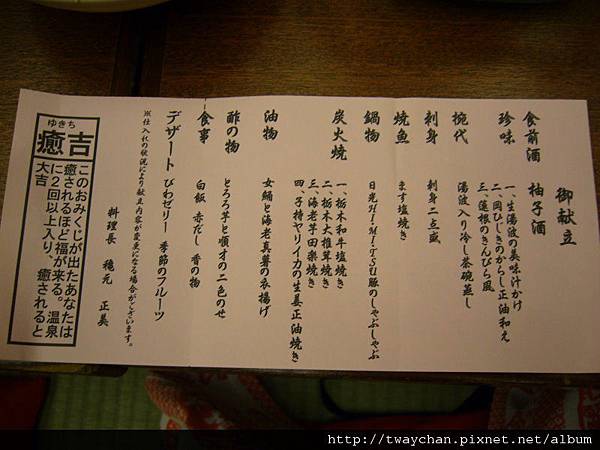 御献立
食前酒 柚子酒
珍味 一、生湯波の美味汁かけ
二、岡ひじきのからし正油和え
三、蓮根のきんぴら風
椀代 湯波入り冷し茶碗蒸し
刺身 刺身二点盛
焼魚 ます塩焼き
鍋物 日光HIMITSU豚のしゃぶしゃぶ
炭火焼 一、栃木和牛塩焼き
二、栃木大椎茸焼き
三、海老芋田楽焼き
四、子持ヤリイカの生姜正油焼き
油物 女鯒と海老真薯の衣揚げ
酢の物 とろろ芋と順才の二色のせ
食事 白飯 赤だし 香の物
デザート びわゼリー 季節のフルーツ
※仕入れの状況により献立内容が変更になる場合がございます。
料理長 穐元 正美
ゆきち
癒吉
このおみくじが出たあなたは
癒されるほど福が来る。温泉
に2回以上入り、癒されると
大吉
http://twaychan.pixnet.net/album